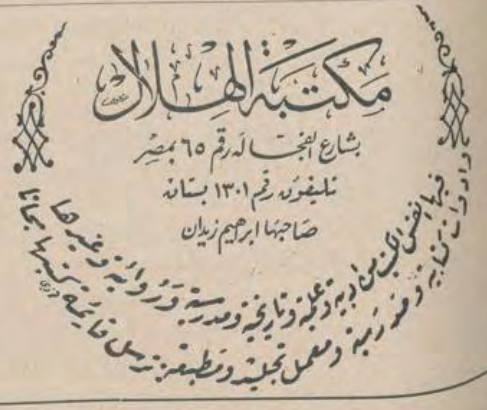 مكتبة الهلال
بشارع الفجالة رقم ٦٥ بمصر
تليفون رقم ١٣٠١ بستان
صاحبها ابرهيم زيدان
فيها انفس الكتب من ادبية وعلمية وتاريخية ومدرسية وروائية وغيرها
وادوات كتابية ومدرسية ومعمل تجليد ومطبعة: ترسل قايمة كتبها مجانا